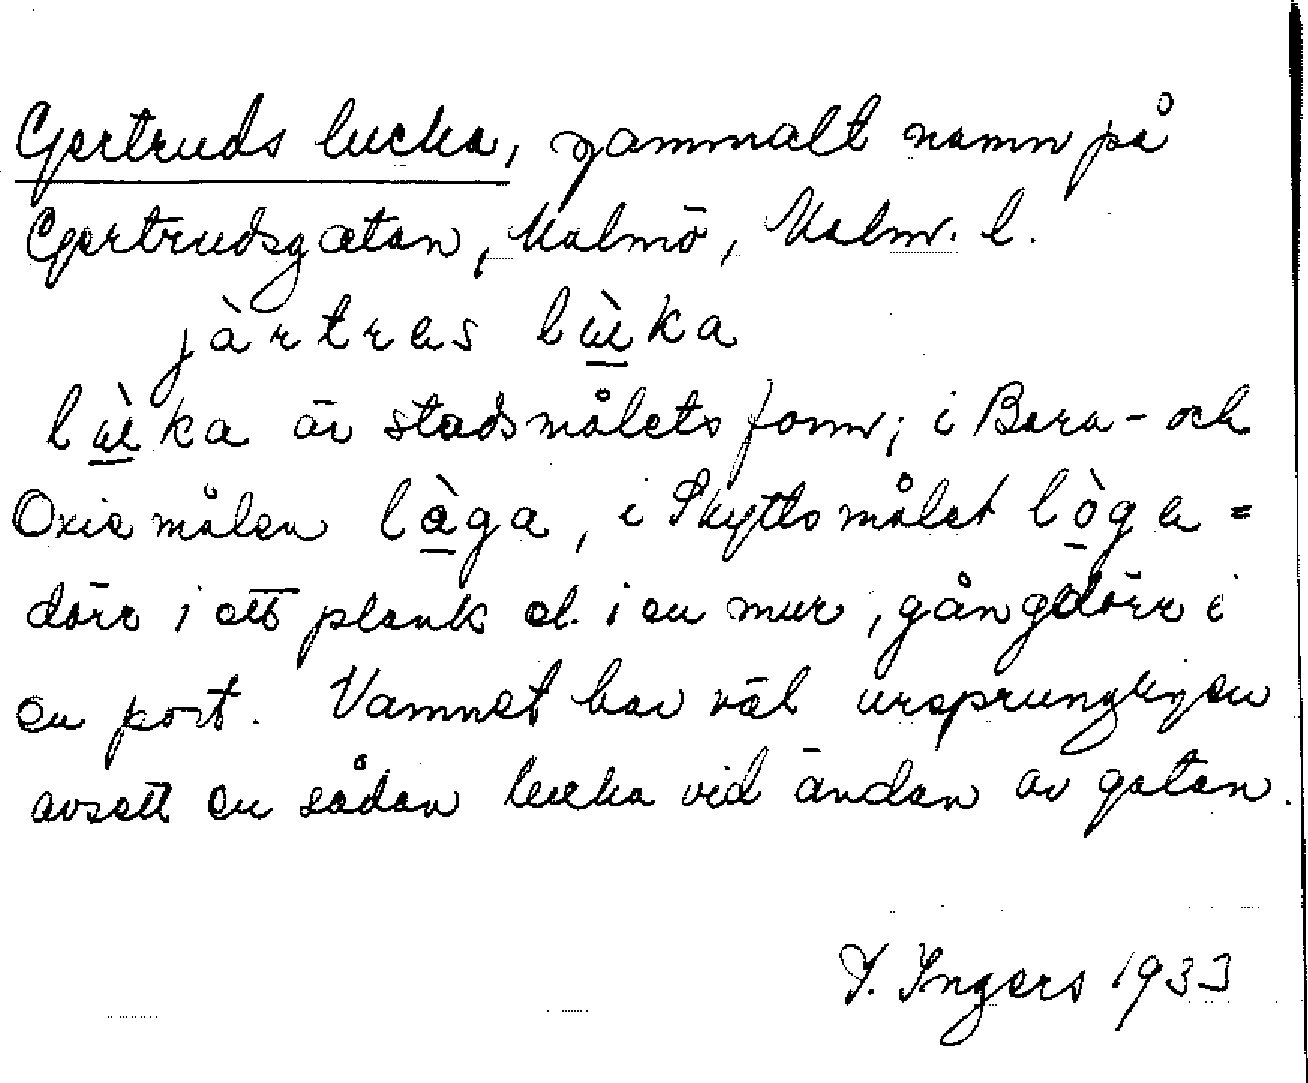 Gertruds lucka, gammalt namn på
Gertrudsgatan, Malmö, Malm. l.
järtras lùka
lùka är stadsmålets form; i Bara- och
Oxie målen làga, i Skytts målet lòga =
dörr i ett plank el. i en mur, gångdörr i
en port. Namnet har väl ursprungligen
avsett en sådan lucka vid ändan av gatan.
I. Ingers 1933